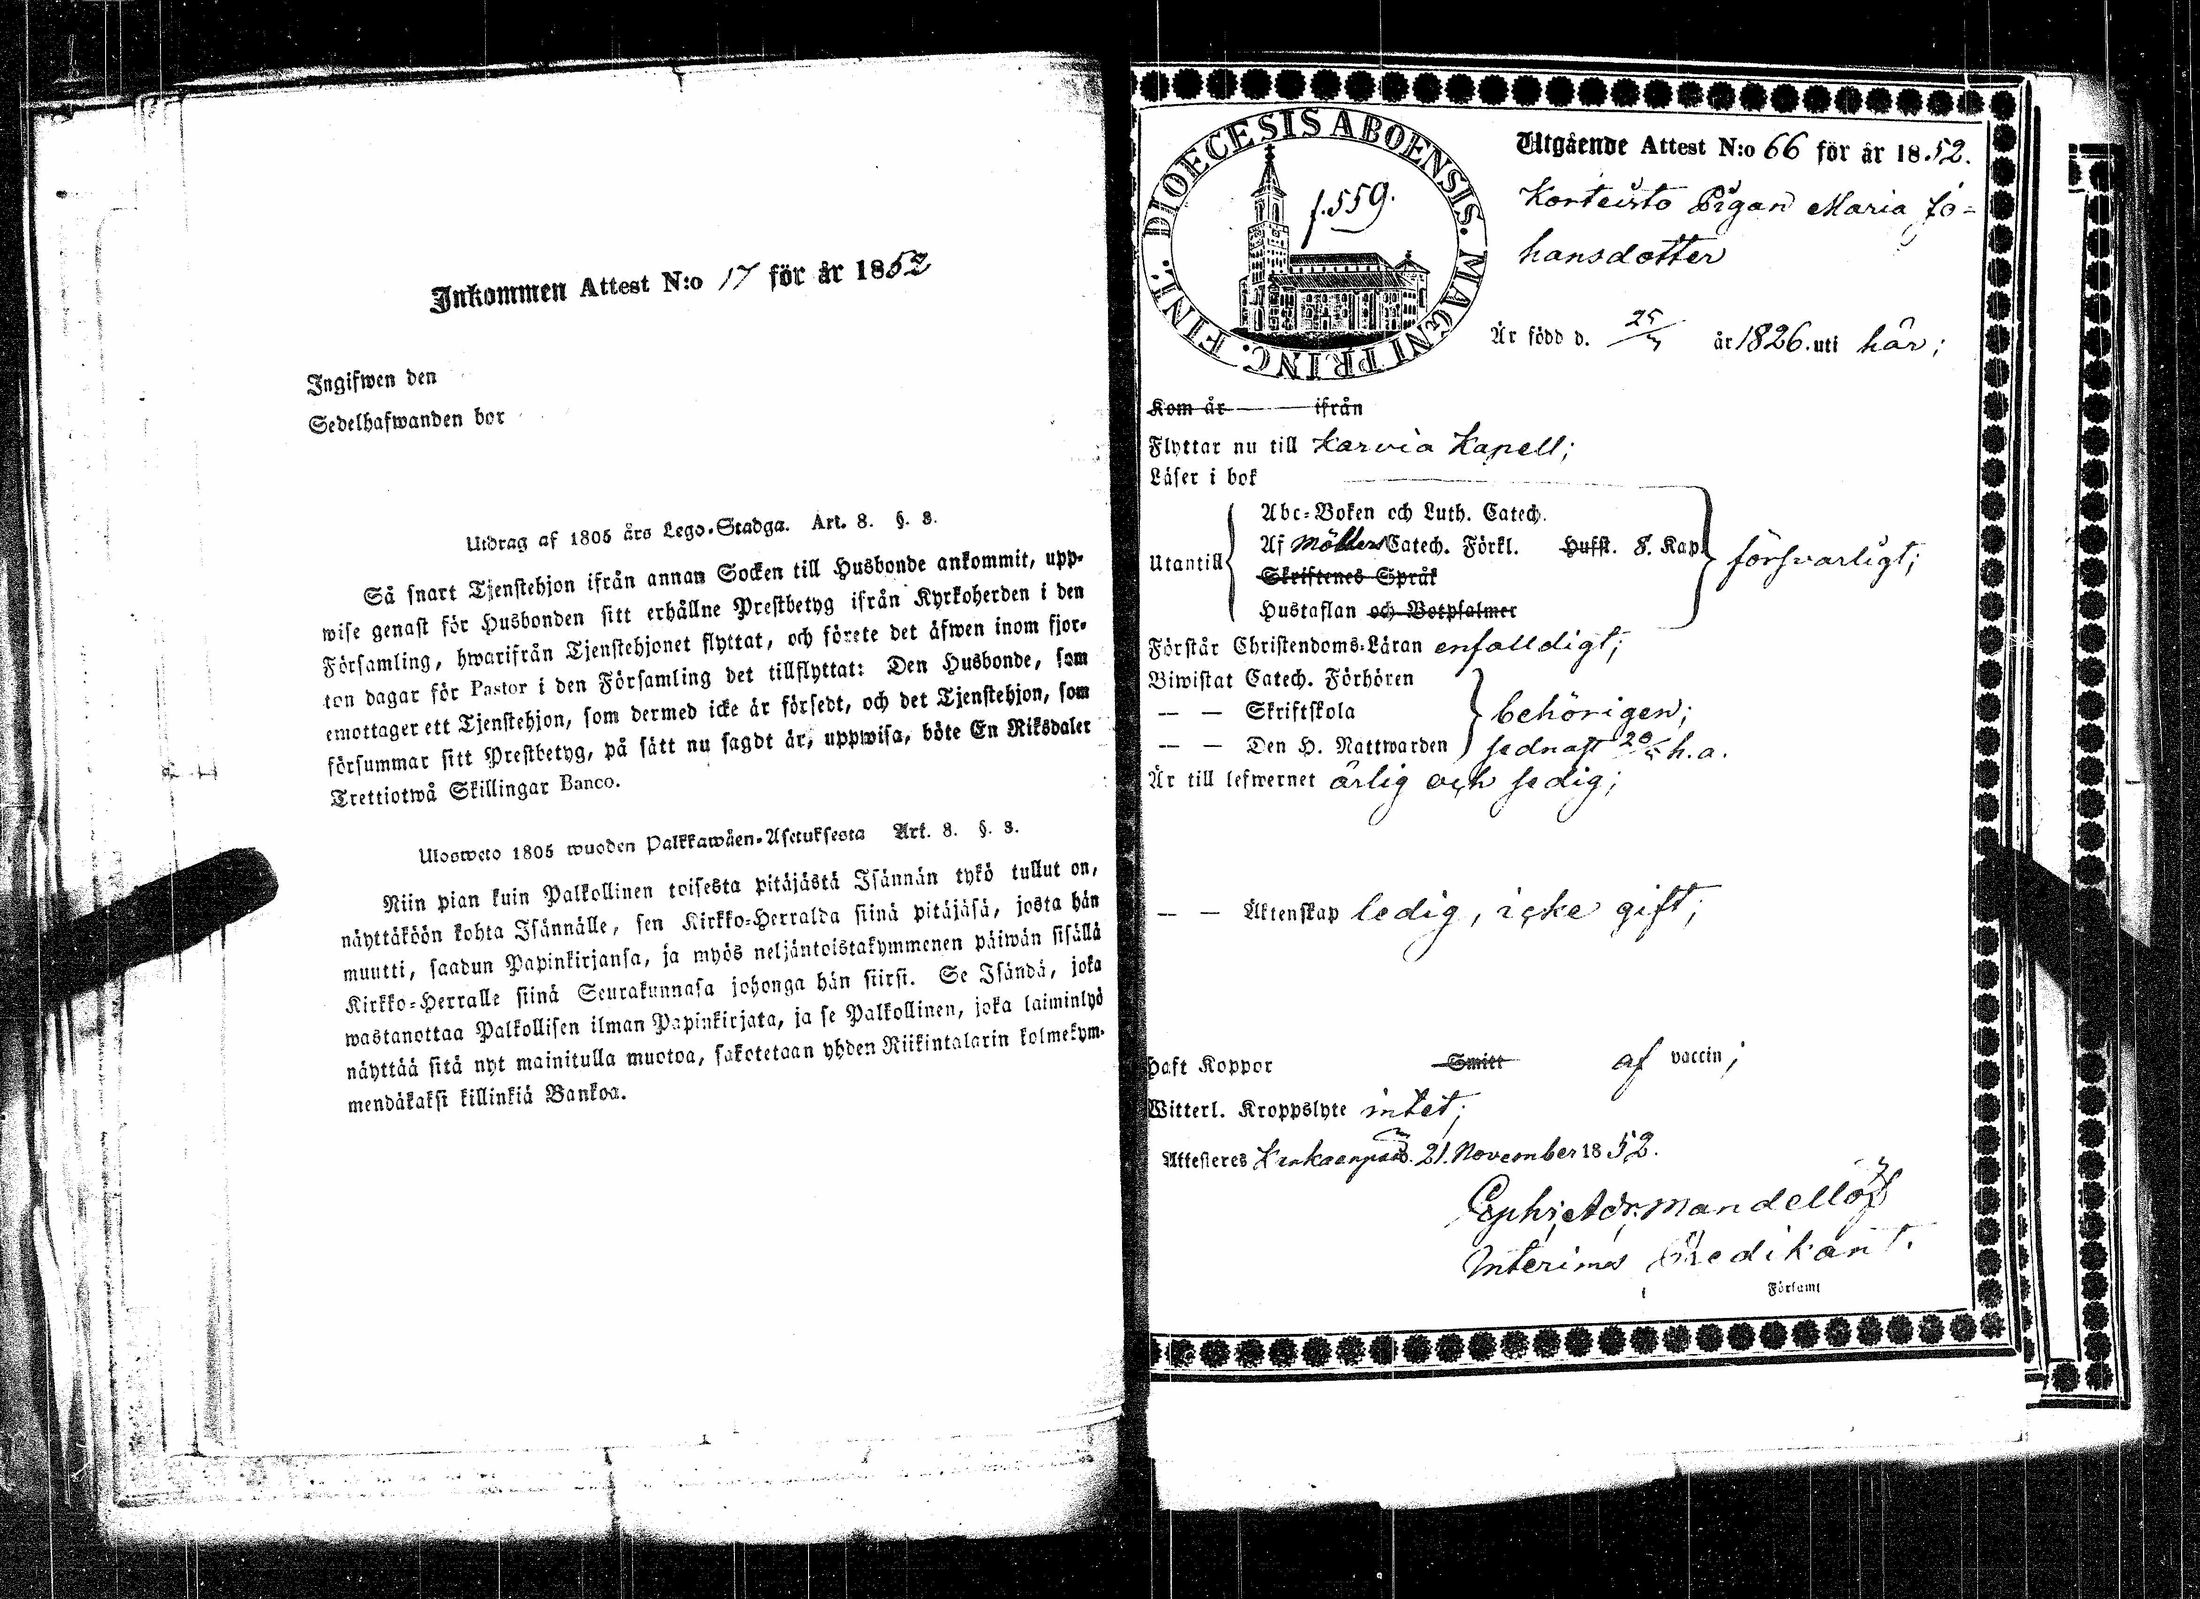 Inkommen Attest N:o 17 för år 1852
Ingifwen den
Sedelhafwanden bor
Utdrag af 1805 års Lego-Stadga. Art. 8. §. 3.
Så snart Tjenstehjon ifrån annan Socken till Husbonde ankommit, upp-
wise genast för Husbonden sitt erhållne Prestbetyg ifrån Kyrkoherden i den
Församling, hwarifrån Tjenstehjonet flyttat, och förete det äfwen inom fjor-
ton dagar för Pastor i den Församling det tillflyttat: Den Husbonde, som
emottager ett Tjenstehjon, som dermed icke är försedt, och det Tjenstehjon, som
försummar sitt Prestbetyg, på sätt nu sagdt är, uppwisa, böte En Riksdaler
Trettiotwå Skillingar Banco.
Ulosweto 1805 wuoden Palkkawäen-Asetuksesta Art. 8. §. 3.
Niin pian kuin Palkollinen toisesta pitäjästä Isännän tykö tullut on,
näyttäköön kohta Isännälle, sen Kirkko-Herralda siinä pitäjäsä, josta hän
muutti, saadun Papinkirjansa, ja myös neljäntoistakymmenen päiwän sisällä
Kirkko-Herralle siinä Seurakunnasa johonga hän siirsi. Se Isändä, joka
wastanottaa Palkollisen ilman Papinkirjata, ja se Palkollinen, joka laiminlyö
näyttää sitä nyt mainitulla muotoa, sakotetaan yhden Riikintalarin kolmekym-
mendäkaksi killinkiä Bankoa.
DIOECESIS ABOENSIS. MAGNI PRINC. FINL.
f. 559.
Utgående Attest N:o 66 för år 1852.
Konteisto Pigan Maria Jo-
hansdotter
Är född d. 25/ år 1826. uti här;
Kom år ifrån
Flyttar nu till Karvia Kapell;
Läser i bok
Abc-Boken och Luth. Catech.
Utantill Af Möllers Catech. Förkl. Hufst. 8. Kap. försvarligt;
Skriftenes Språk
Hustaflan och Botpsalmer
Förstår Christendoms-Läran enfalldigt;
Biwistat Catech. Förhören
— — Skriftskola behörigen;
— — Den H. Nattwarden sednast 20/ h.a.
Är till lefwernet ärlig och sedig;
— — Äktenskap ledig, icke gift;
Haft Koppor Smitt af vaccin;
Witterl. Kroppslyte intet;
Attesteras Kankaanpää d. 21. November 1852.
Ephr. Adr. Mandellöf
Interims Predikant.
Församl